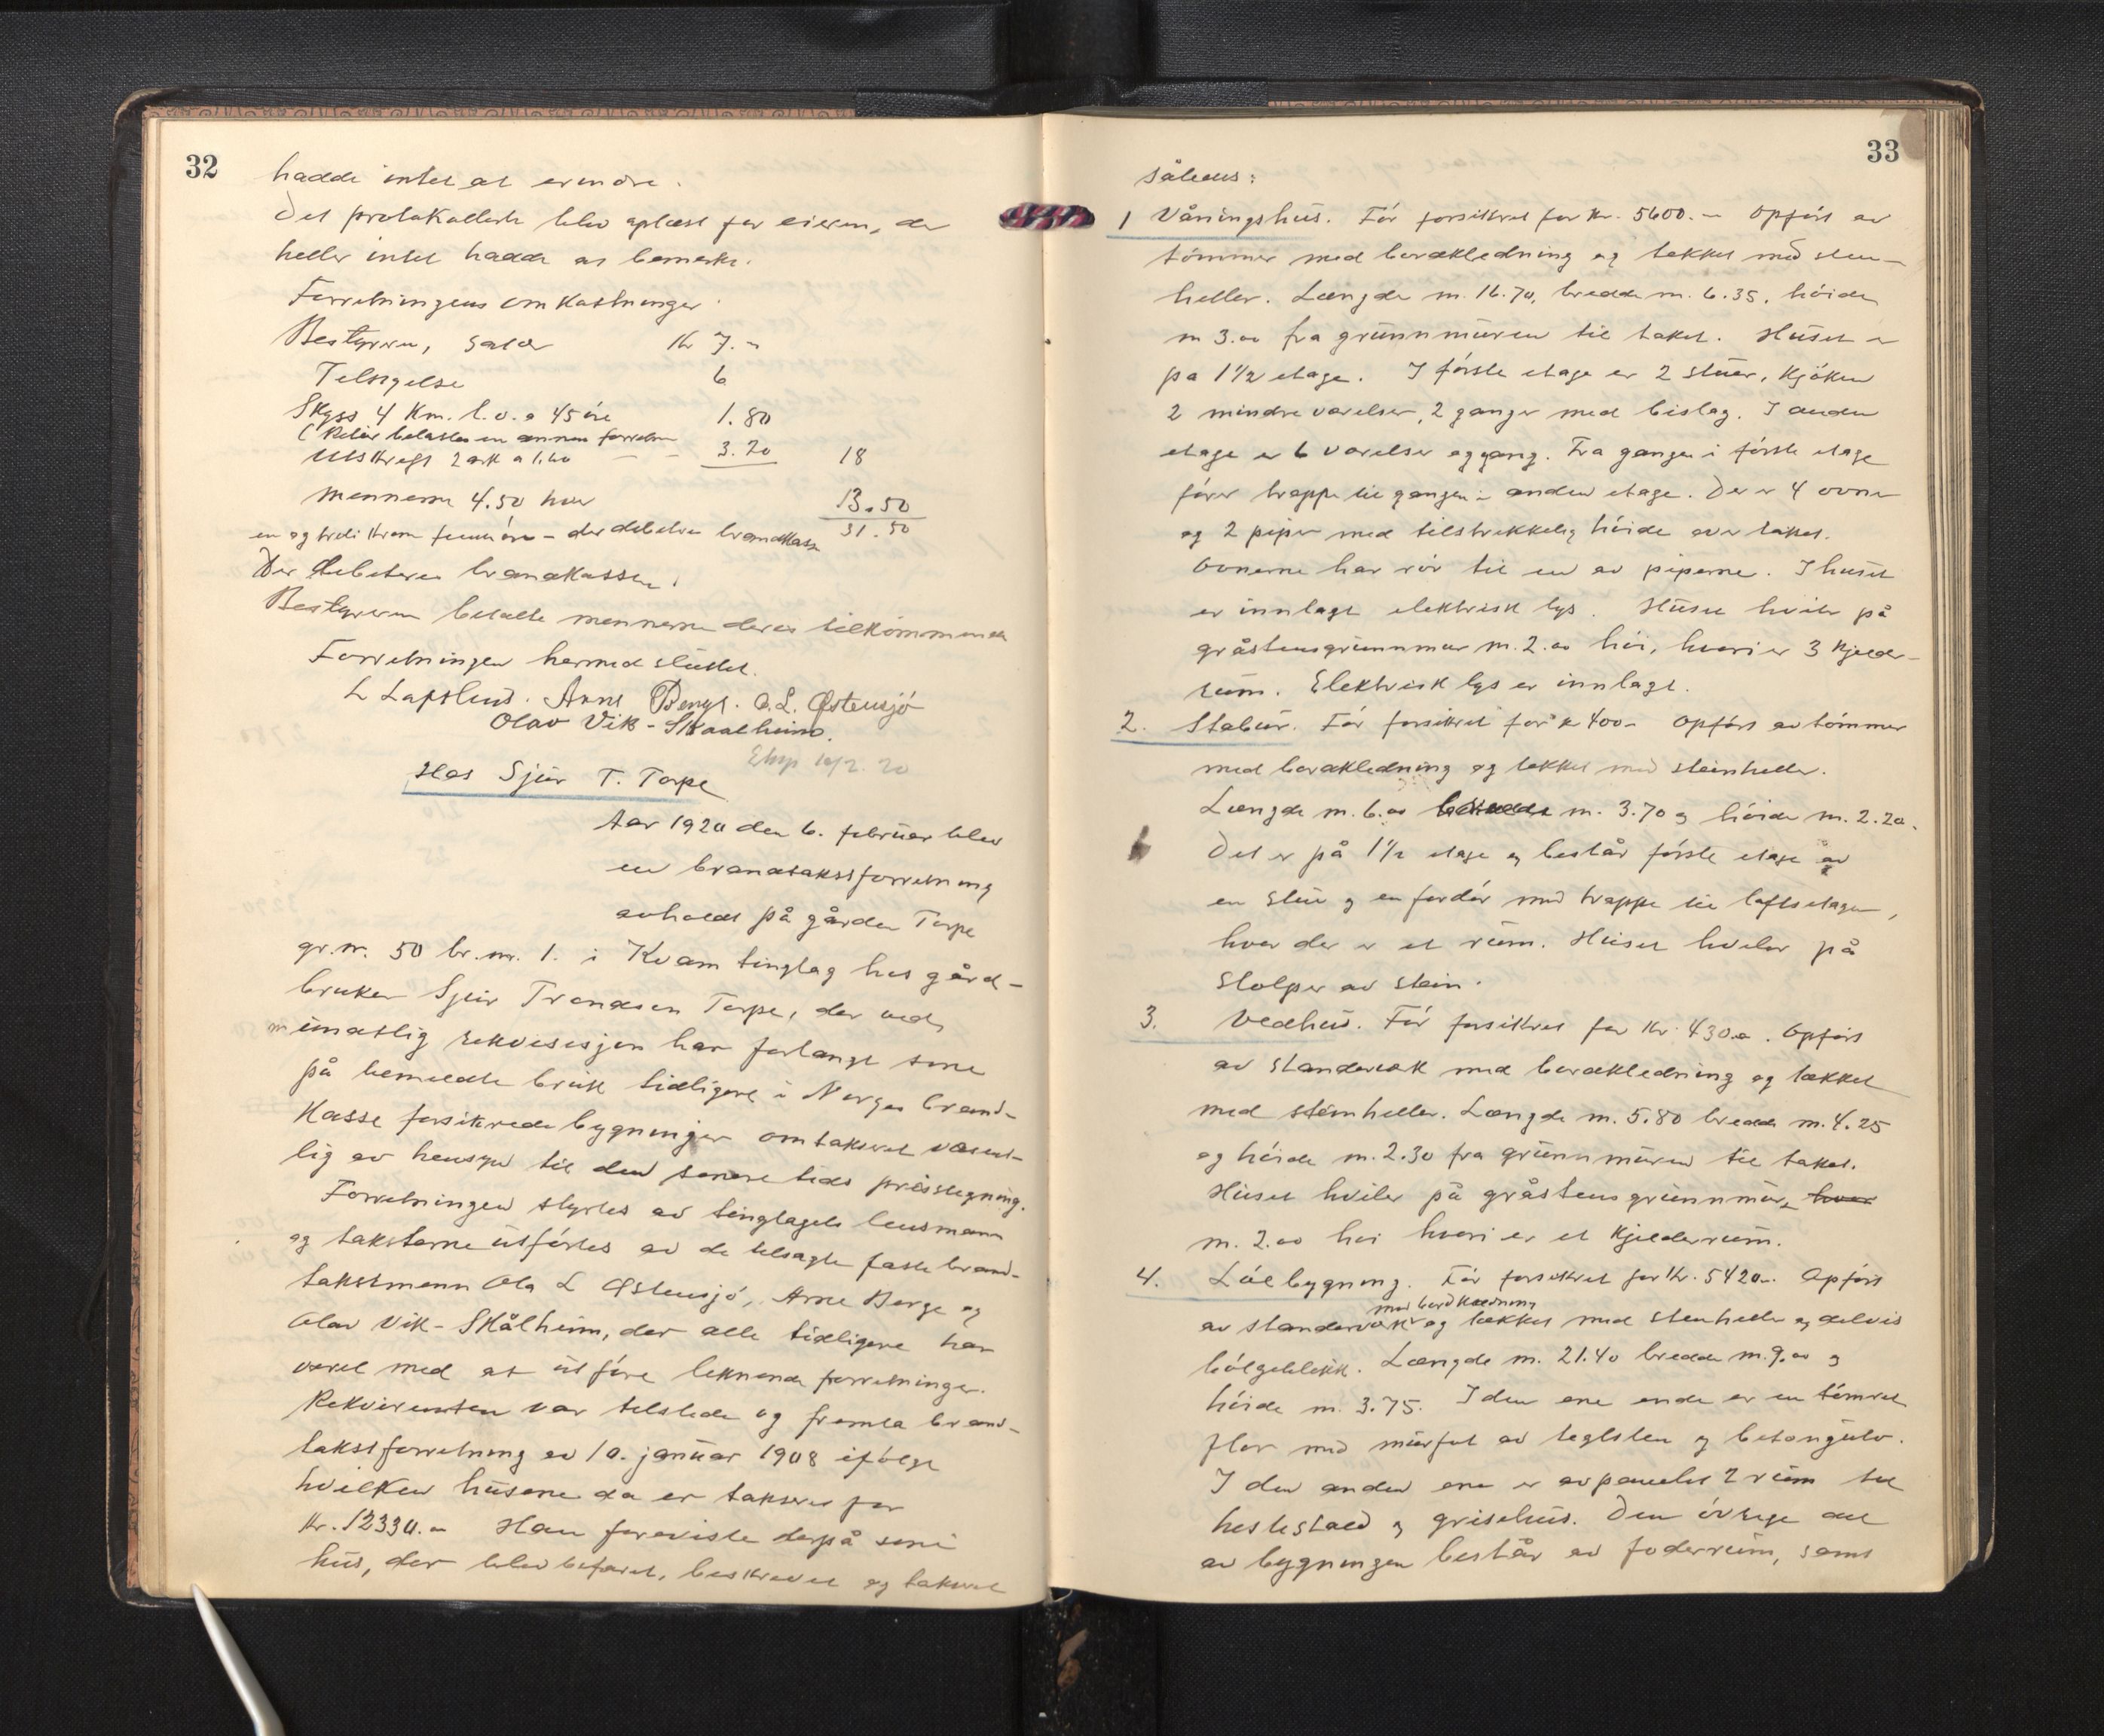 32
hadde intet at erindre.
Det protokollerte blev oplæst for eieren, der
heller intet hadde at bemerke.
Forretningens omkostninger
Bestyreren, salær Kr 7.-
Tilsigelse 6
Skyss 4 Km. t.o. a 45 øre 1.80
( Retur belastes en annen forretn
Utskrift 2 ark a 1.60 - - 3.20 18
mennerne 4.50 hver 13.50
31.50
en og treti kroner femti øre - der debeteres brandkassen
Der debeteres brandkassen.
Bestyreren betalte mennerne deres tilkommende
Forretningen hermed sluttet.
Arne Berge. O. L. Østensjö
Olav Vik - Skaalheim.
Eksp 10/2. 20
Hos Sjur T. Torpe
Aar 1920 den 6. februar blev
en brandtakstforretning
avholdt på gården Torpe
gr.nr. 50 br.nr. 1. i Kvam tinglag hos gård-
bruker Sjur Trondsen Torpe, der ved
mundtlig rekvisisjon har forlangt sine
på bemeldte bruk tidligere i Norges brand-
Kasse forsikrede bygninger omtaksert væsent-
lig av hensyn til den senere tids prisstigning.
Forretningen styrtes av tinglagets lensmann
og taksterne utførtes av de tilsagte faste brand-
takstmenn Ola L Østensjö, Arne Berge og
Olav Vik - Skålheim, der alle tidligere har
været med at utføre liknende forretninger.
Rekvirenten var tilstede og fremla brand-
takstforretning av 10. januar 1908 ifølge
hvilken husene da er taksert for
Kr. 12330.- Han foreviste derpå sine
hus, der blev befaret, beskrevet og taksert
33
således:
1 Våningshus. Før forsikret for Kr. 5600.- Opført av
tømmer med bordklædning og tekket med sten-
heller. Længde m. 16.70, bredde m. 6.35, høide
m 3.00 fra grunnmuren til taket. Huset er
på 1 1/2 etage. I første etage er 2 stuer, kjøken
2 mindre værelser, 2 ganger med bislag. I anden
etage er 6 værelser og gang. Fra gangen i første etage
fører trappe til gangen i anden etage. Der er 4 ovner
og 2 piper med tilstrekkelig høide over taket.
Ovnerne har rør til en av piperne. I huset
er innlagt elektrisk lys. Huset hviler på
gråstensgrunnmur m. 2.00 høi, hvori er 3 kjelder-
rum. Elektrisk lys er innlagt.
2. Stabur. Før forsikret for kr 400.- Opført av tømmer
med bordklædning og tekket med steinheller.
Længde m. 6.00 bredde m. 3.70 og høide m. 2.20.
Det er på 1 1/2 etage og består første etage av
en stue og en fordør med trappe til loftsetagen,
hvor der er et rum. Huset hviler på
stolper av stein.
3. Vedhus. Før forsikret for Kr. 430.-. Opført
av standerverk med bordklædning og tækket
med stenheller. Længde m. 5.80 bredde m. 4.25
og høide m. 2.30 fra grunnmuren til taket.
Huset hviler på gråstensgrunnmur, hvor
m. 2.00 høi hvori er et kjelderrum.
4. Löebygning. Før forsikret for Kr. 5420.-. Opført
med bordklædning
av standerværk og tækket med stenheller og delvis
bølgeblikk. Længde m. 21.40 bredde m. 9.00 og
høide m. 3.75. I den ene ende er en tømret
flor med murfot av teglsten og betongulv.
I den anden ene er avpanelet 2 rum til
hestestald og grisehus. Den øvrige del
av bygningen består av foderrum, samt